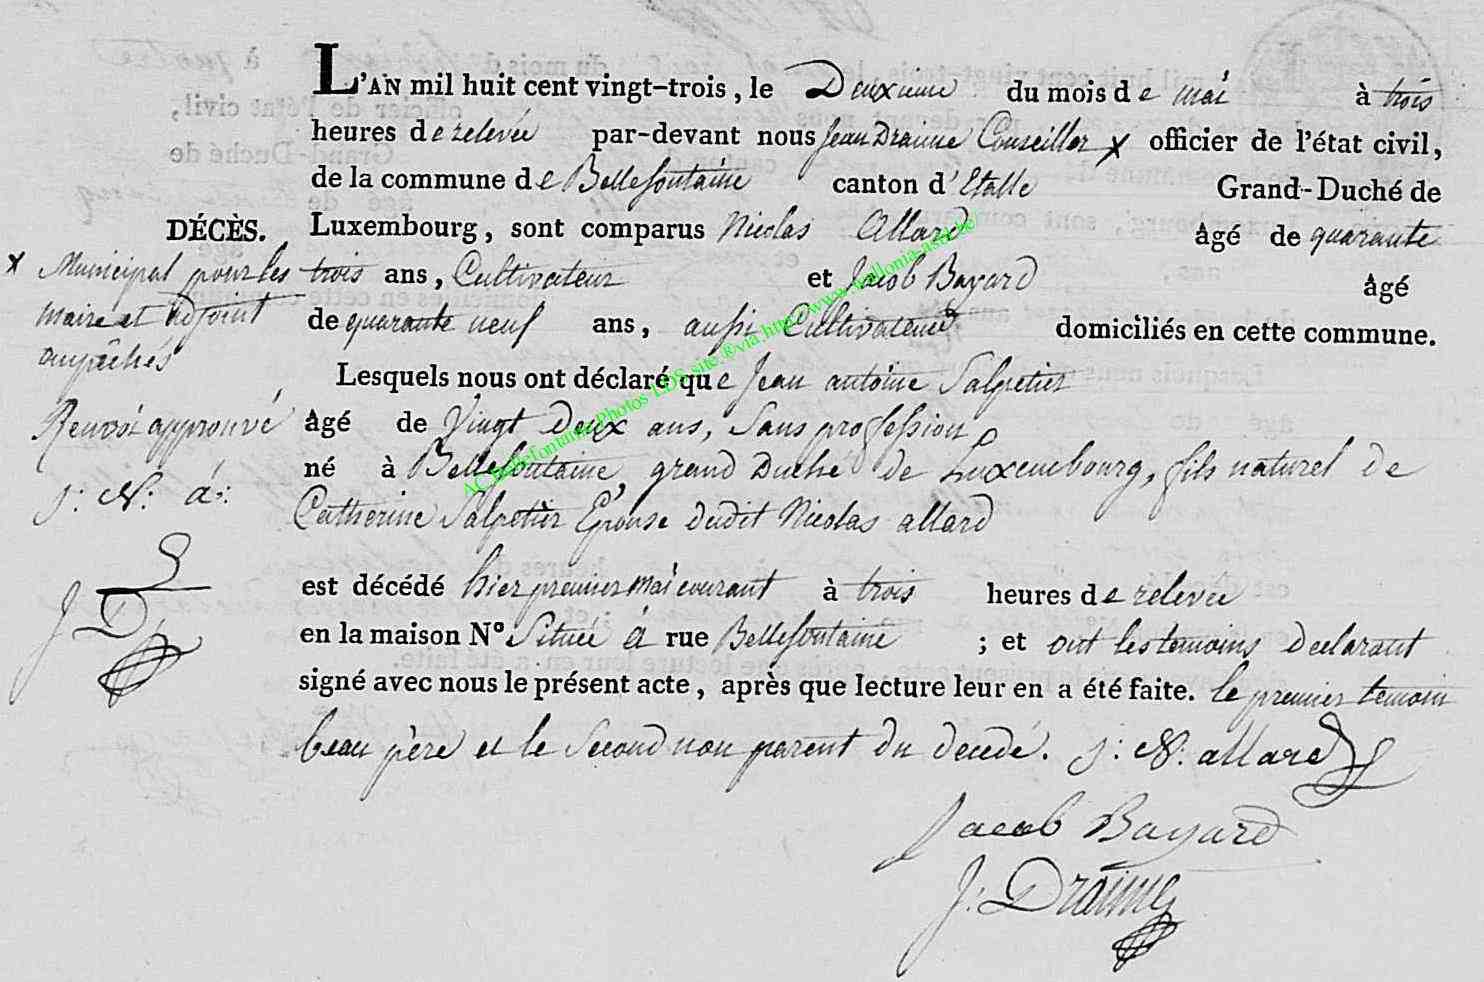 L'AN mil huit cent vingt-trois, le Deuxieme du mois de mai à trois
heures de relevée par-devant nous Jean Dranne Conseiller x officier de l'état civil,
de la commune de Bellefontaine canton d'Etalle Grand-Duché de
DÉCÈS. Luxembourg, sont comparus Nicolas Allard âgé de quarante
trois ans, Cultivateur et Jacob Bayard âgé
de quarante neuf ans, aussi Cultivateur domiciliés en cette commune.
x Municipal pour les
maire et adjoint
empêchés
Renvoi approuvé
j: N: a:
J D
Lesquels nous ont déclaré que Jean antoine Salpetier
âgé de Vingt Deux ans, Sans profession
né à Bellefontaine, grand Duché de Luxembourg, fils naturel de
Catherine Salpetier Epouse dudit Nicolas allard
est décédé hier premier mai courant à trois heures de relevée
en la maison N° Située à rue Bellefontaine ; et ont les temoins declarant
signé avec nous le présent acte, après que lecture leur en a été faite. le premier temoin
beau père et le Second non parent du decedé. j: N: allard
Jacob Bayard
J: Dranne